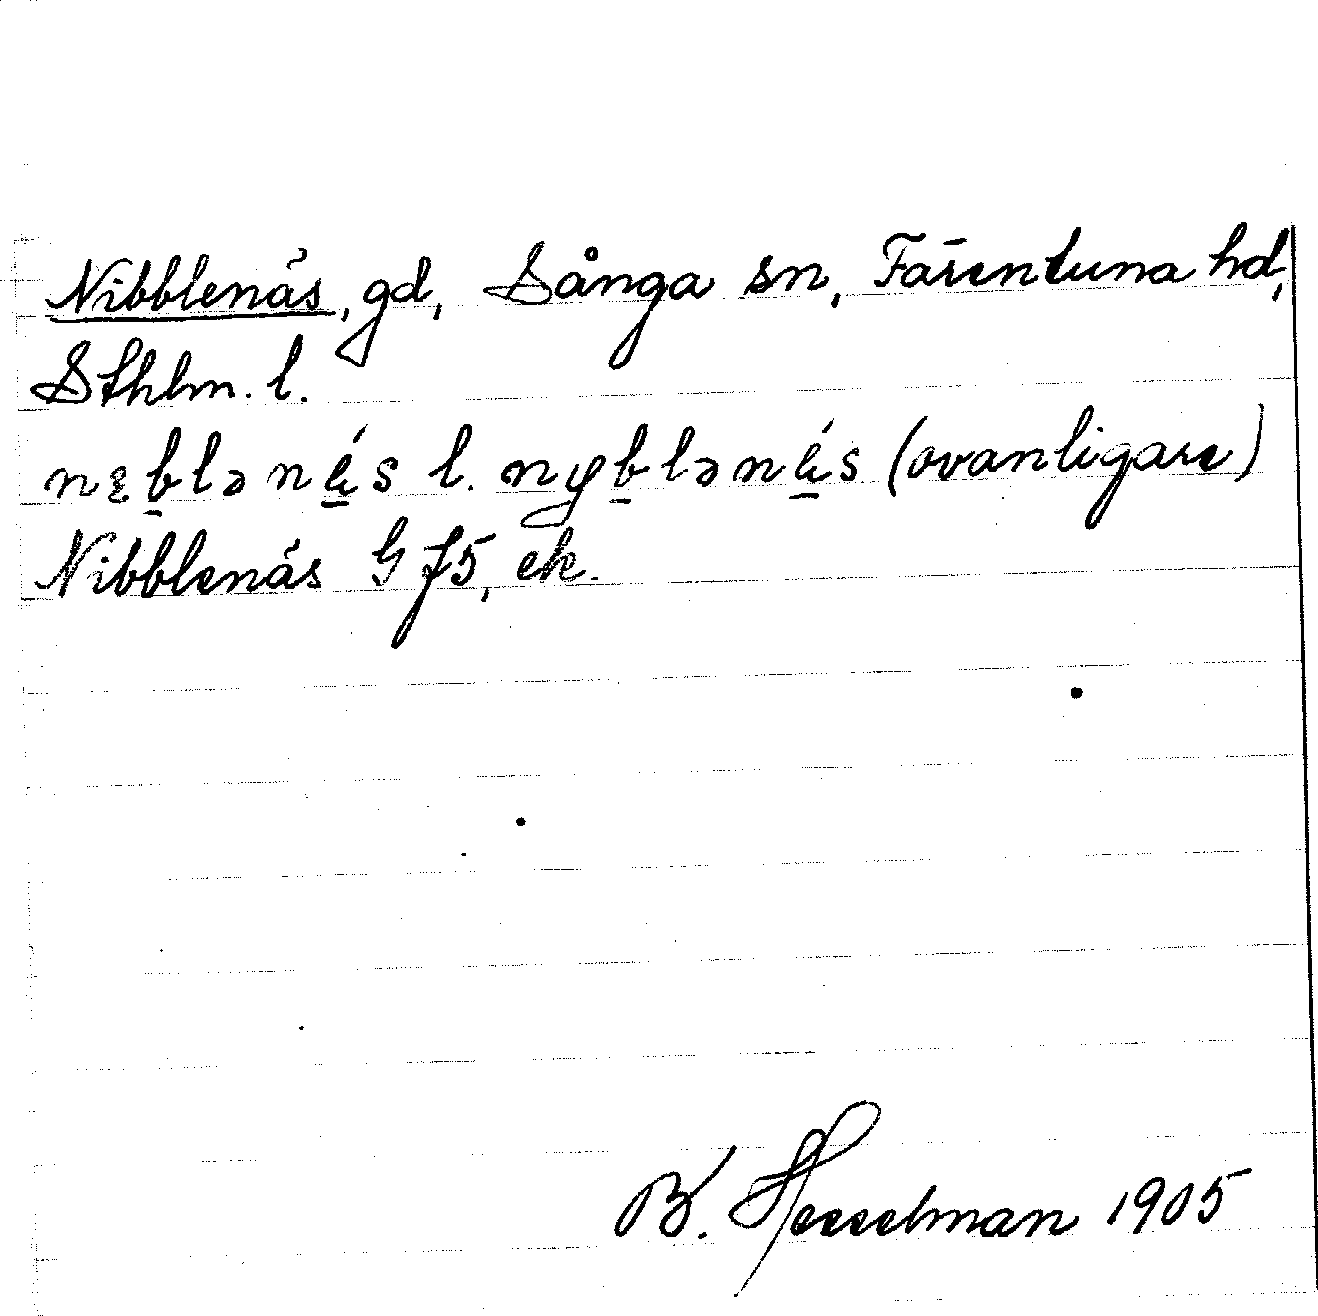 Nibblenäs, gd, Sånga sn, Färentuna hd,
Sthlm. l.
nɛb̠lənä̠́s l. nyb̠lənä̠́s (ovanligare)
Nibblenäs G f5, ek.
B. Hesselman 1905